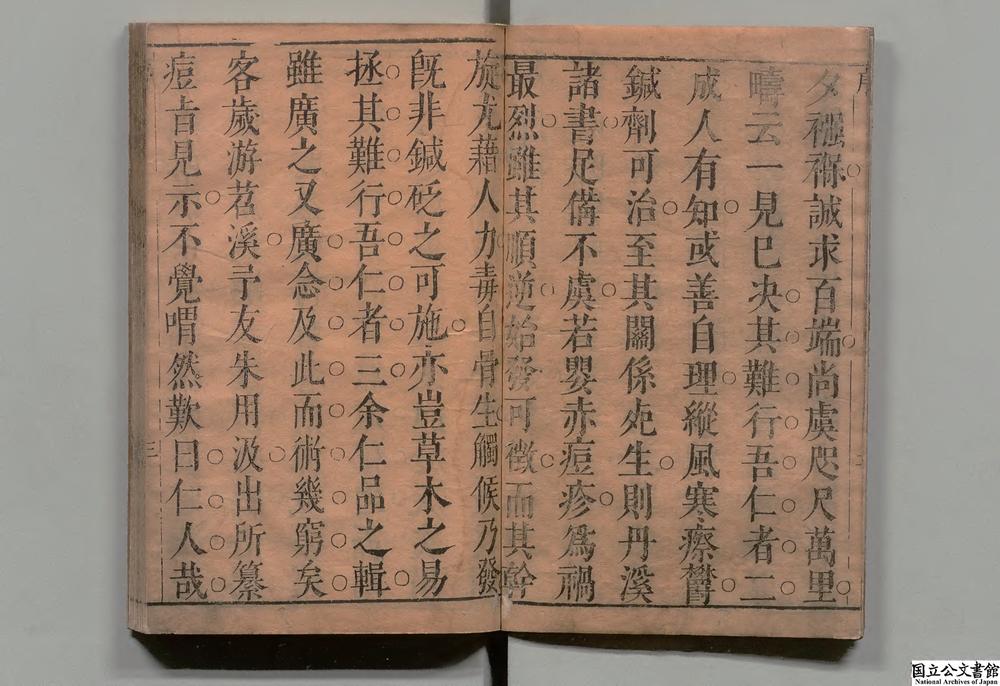 夕襁褓誠求百端尚虞咫尺萬里
疇云一見巳决其難行吾仁者二
成人有知或善自理縱風寒瘵欝
鍼劑可治至其關係死生則丹溪
諸書足備不虞若嬰赤痘疹爲禍
最烈雖其順逆始發可徵而其幹
旋尤藉人力毒自骨生觸候乃發
旣非鍼砭之可施亦豈草木之易
拯其難行吾仁者三余仁品之輯
雖廣之又廣念及此而術幾窮矣
客歲游苕溪予友朱用汲出所纂
痘㫖見示不覺喟然歎曰仁人哉
序
三
国立公文書館
National Archives of Japan